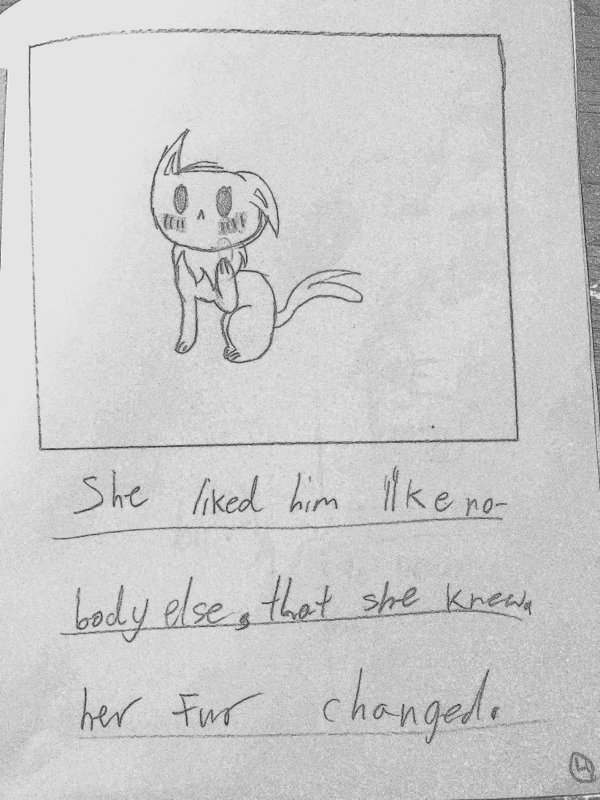 She liked him like no-
body else, that she knew.
her Fur changed.
4